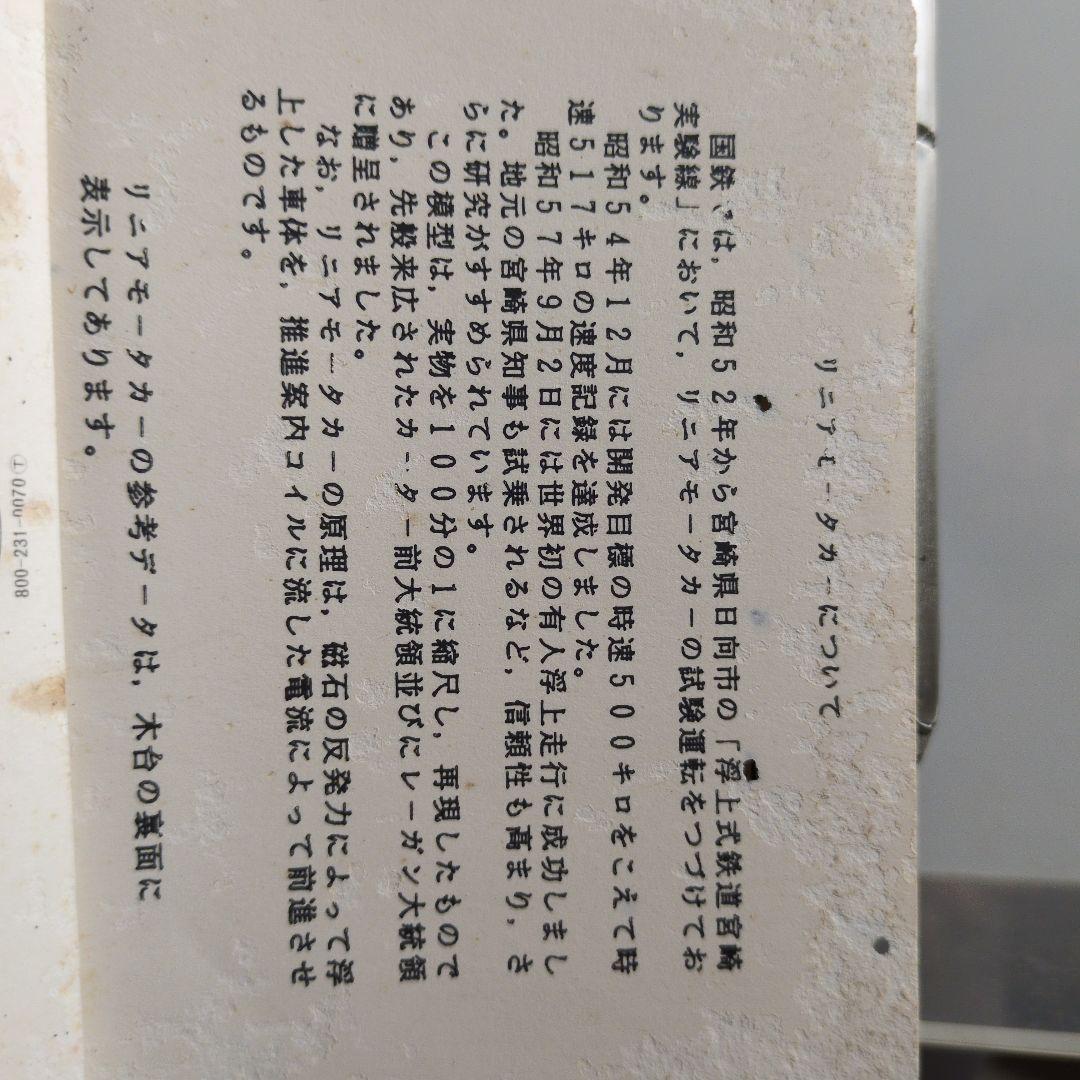 リニアモータカーについて
国鉄では，昭和52年から宮崎県日向市の「浮上式鉄道宮崎
実験線」において，リニアモータカーの試験運転をつづけてお
ります。
昭和54年12月には開発目標の時速500キロをこえて時
速517キロの速度記録を達成しました。
昭和57年9月2日には世界初の有人浮上走行に成功しまし
た。地元の宮崎県知事も試乗されるなど，信頼性も高まり，さ
らに研究がすすめられています。
この模型は，実物を100分の1に縮尺し，再現したもので
あり，先般来広されたカーター前大統領並びにレーガン大統領
に贈呈されました。
なお，リニアモータカーの原理は，磁石の反発力によって浮
上した車体を，推進案内コイルに流した電流によって前進させ
るものです。
リニアモータカーの参考データは，木台の裏面に
表示してあります。
800-231-0070①